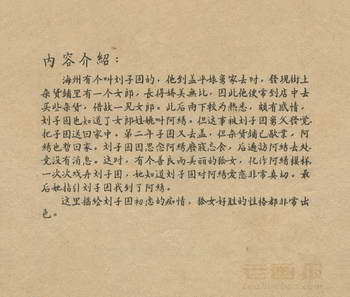 内容介紹：
海州有个叫刘子固的，他到盖平娘舅家去时，發現街上
杂貨鋪里有一个女郎，長得嬌美無比，因此他便常到店中去
买些杂貨，借故一见女郎。此后两下較为熱恋，頗有感情，
刘子固也知道了女郎姓姚叫阿綉。但这事被刘子固舅父發覺
把子固送回家中，第二年子固又去盖，但杂貨鋪已歇業，阿
綉也暫回家，刘子固因思念阿綉廢寝忘食，后遍訪阿綉去处
竟没有消息。这时，有个善良而美丽的狐女，化作阿綉模样
一次次戏弄刘子固，她知道刘子固对阿綉爱恋非常真切。最
后她指引刘子固找到了阿綉。
这里描绘刘子固初恋的痴情，狐女好胜的性格都非常出
色。
老画报
laohuabao.com